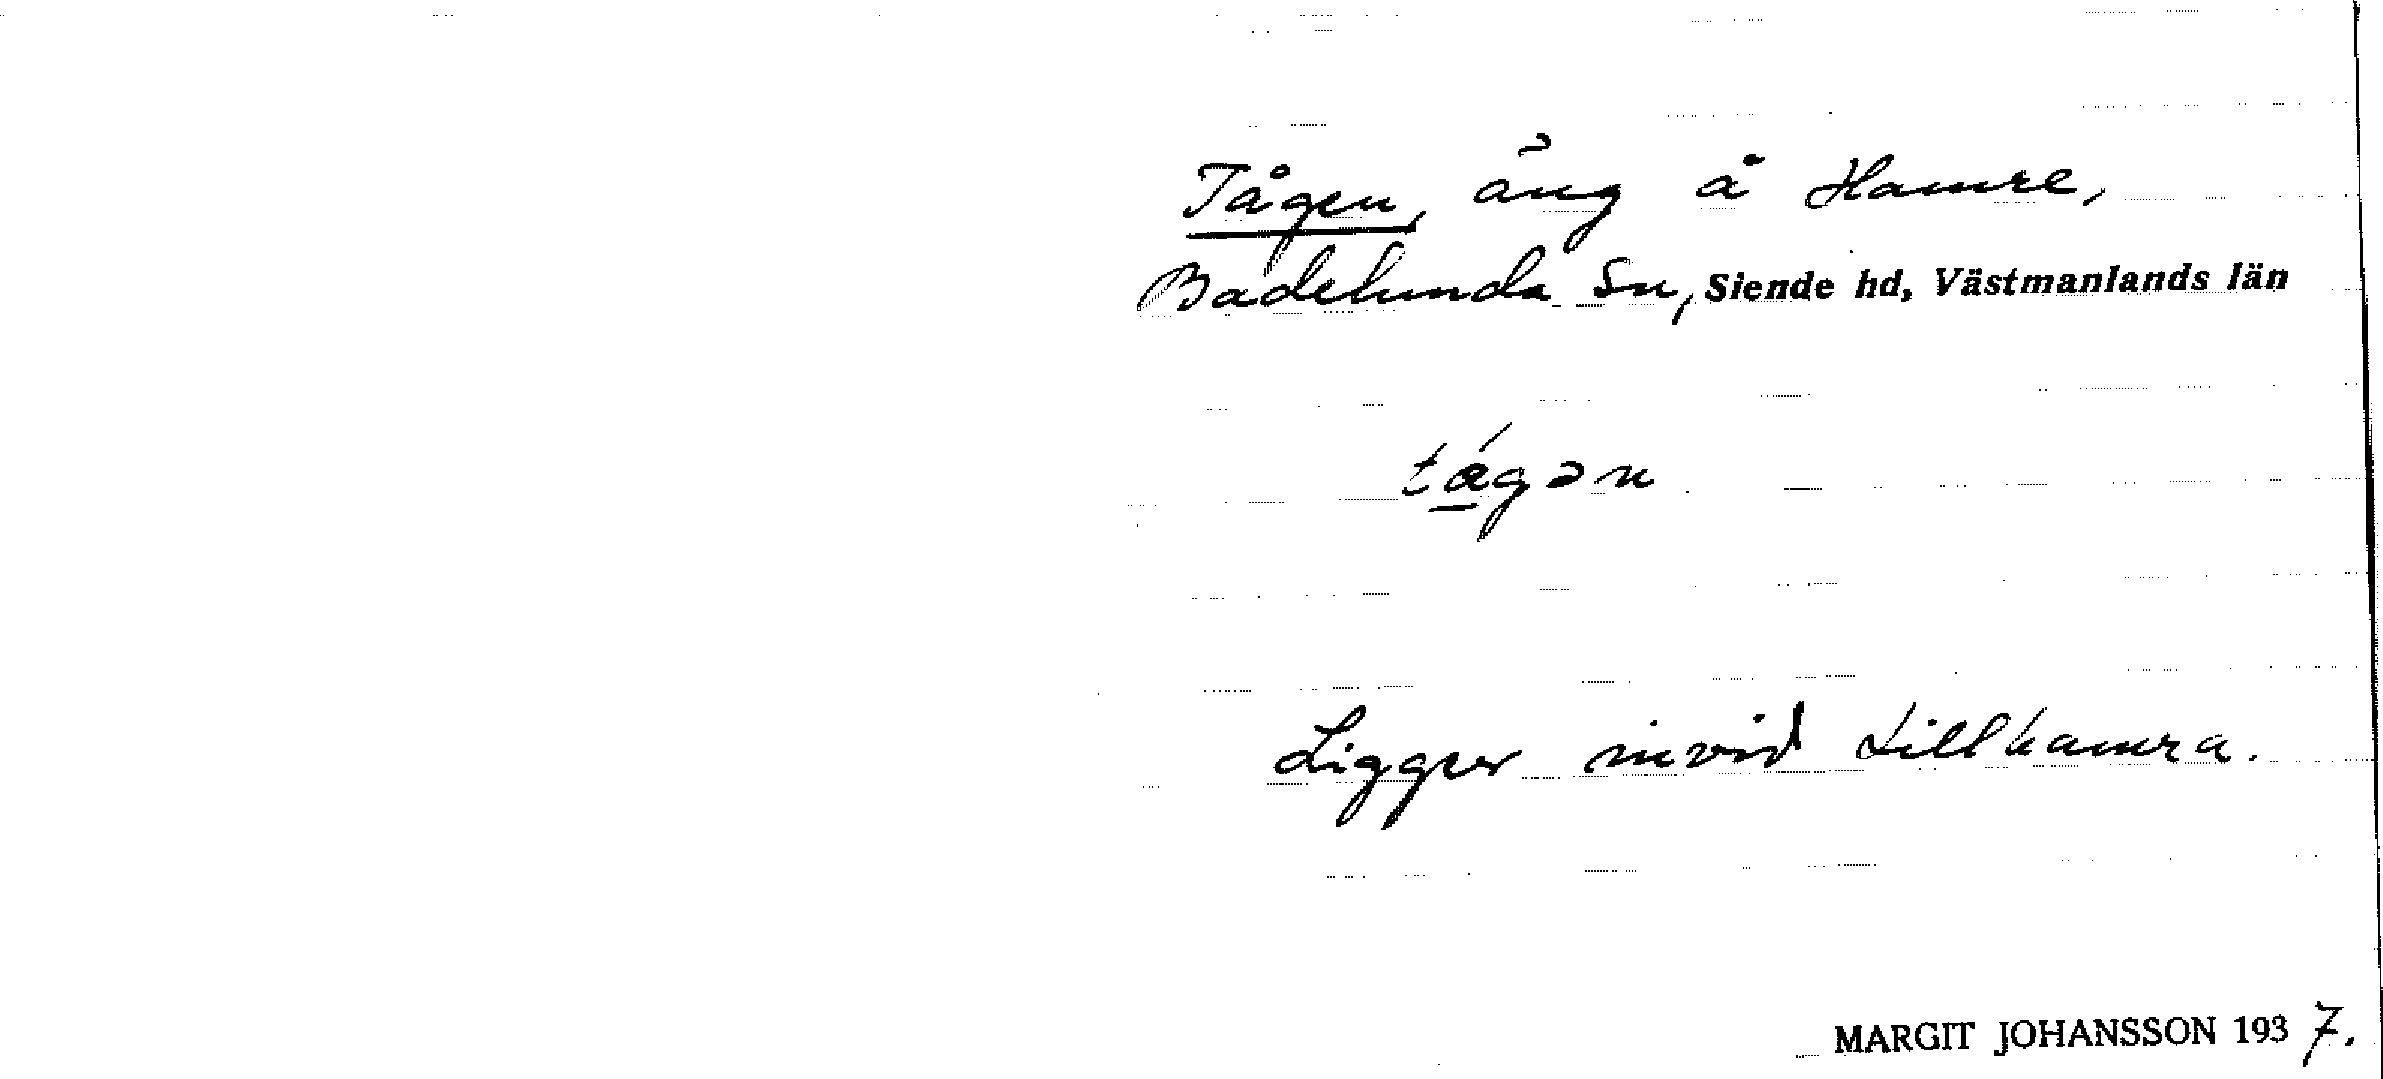 Tågen, äng å Hamre,
Badelunda Sn, Siende hd, Västmanlands län
tá̲gən
Ligger invid Lillhamra.
MARGIT JOHANSSON 1937.